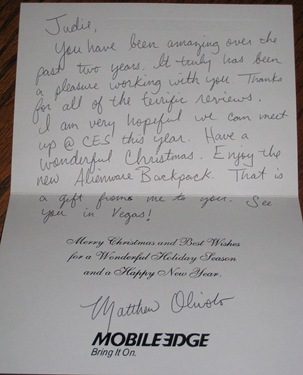 Judie,
You have been amazing over the
past two years. It truly has been
a pleasure working with you. Thanks
for all of the terrific reviews.
I am very hopeful we can meet
up @ CES this year. Have a
wonderful Christmas. Enjoy the
new Alienware Backpack. That is
a gift from me to you. See
you in Vegas!
Merry Christmas and Best Wishes
for a Wonderful Holiday Season
and a Happy New Year.
Matthew
MOBILE EDGE
Bring It On.